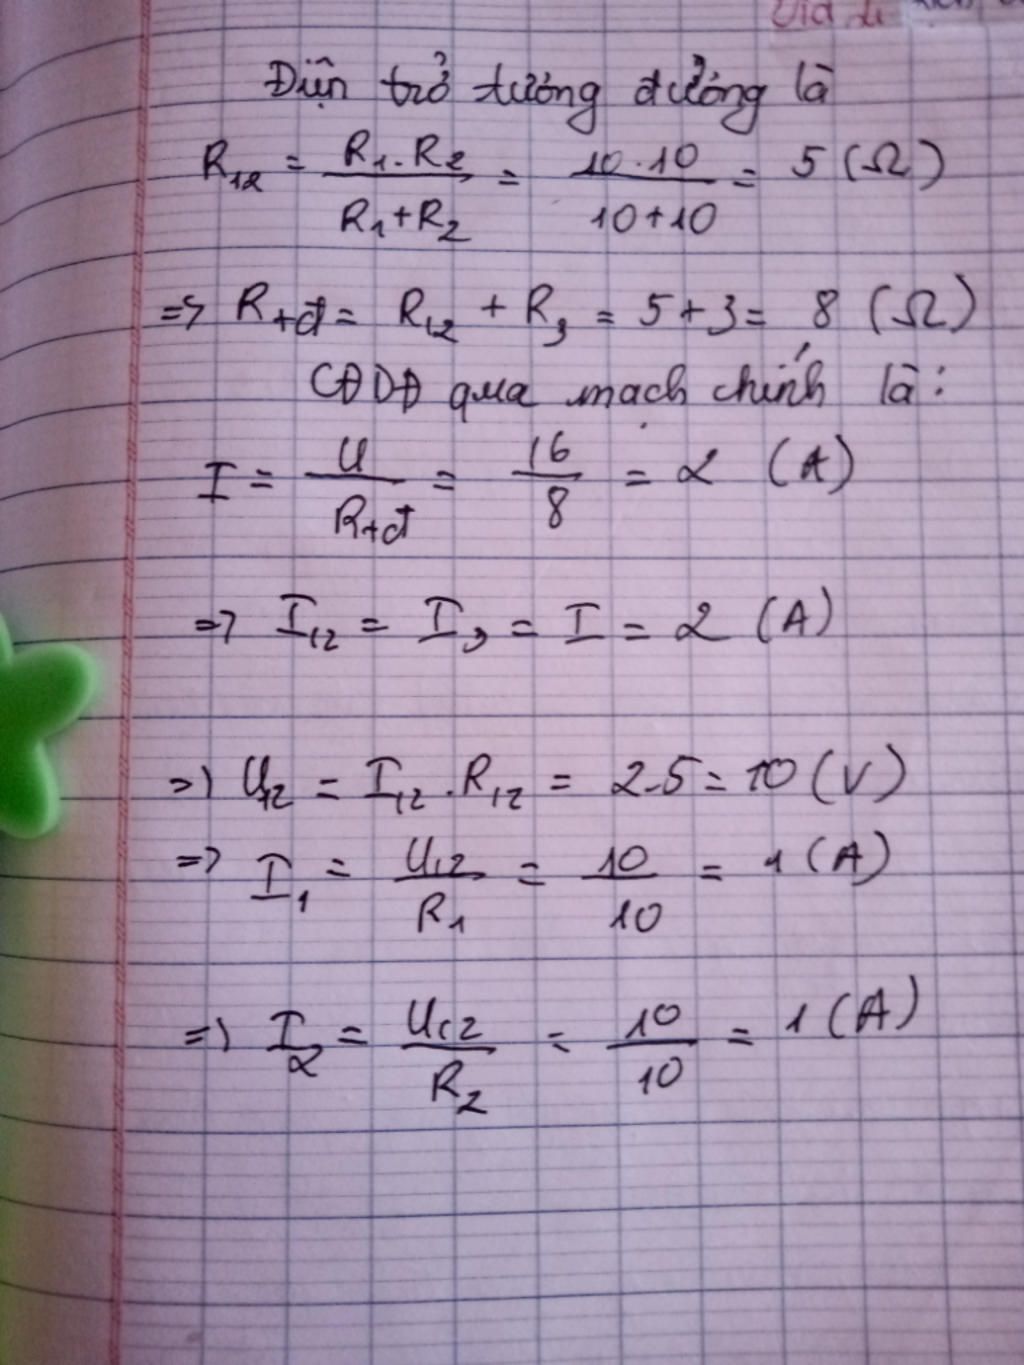 Điện trở tương đương là
R₁₂ = R₁.R₂ / R₁+R₂ = 10.10 / 10+10 = 5 (Ω)
=> Rtđ = R₁₂ + R₃ = 5+3 = 8 (Ω)
CĐDĐ qua mạch chính là:
I = U / Rtđ = 16 / 8 = 2 (A)
=> I₁₂ = I₃ = I = 2 (A)
=> U₁₂ = I₁₂.R₁₂ = 2.5 = 10 (V)
=> I₁ = U₁₂ / R₁ = 10 / 10 = 1 (A)
=> I₂ = U₁₂ / R₂ = 10 / 10 = 1 (A)